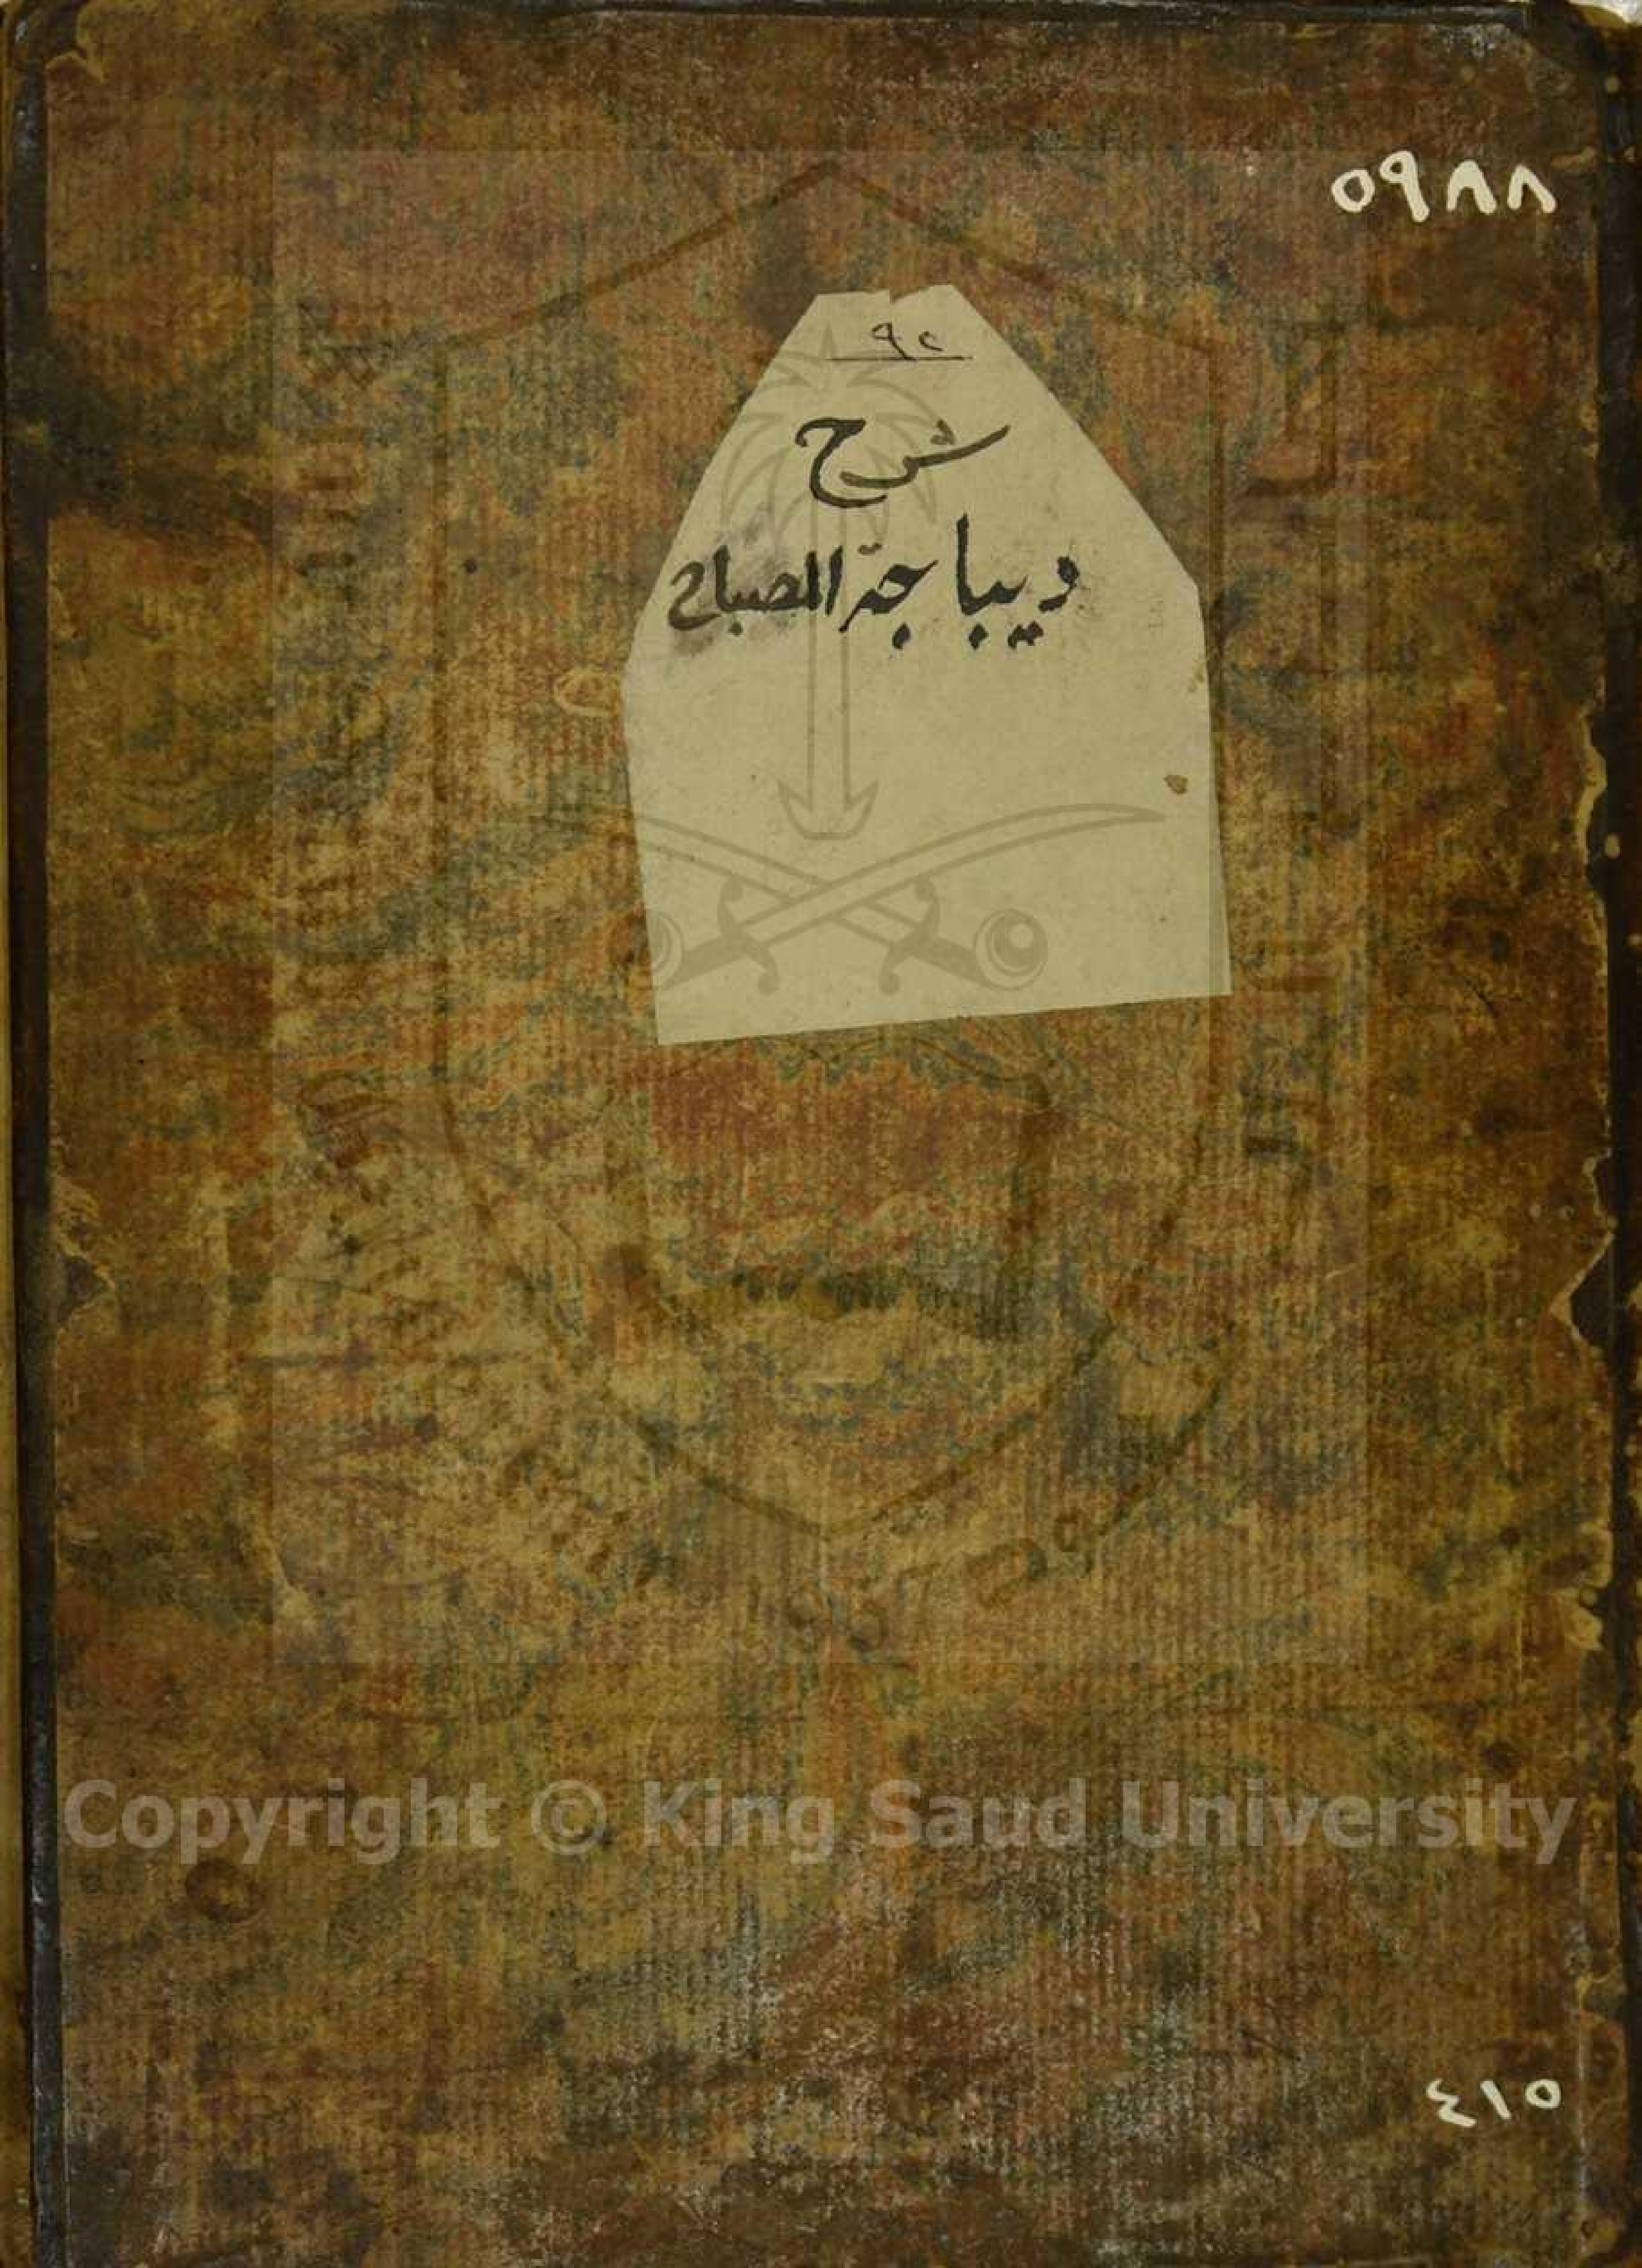 ٥٩٨٨
٩٢
شرح
ديباجة المصباح
Copyright © King Saud University
٤١٥